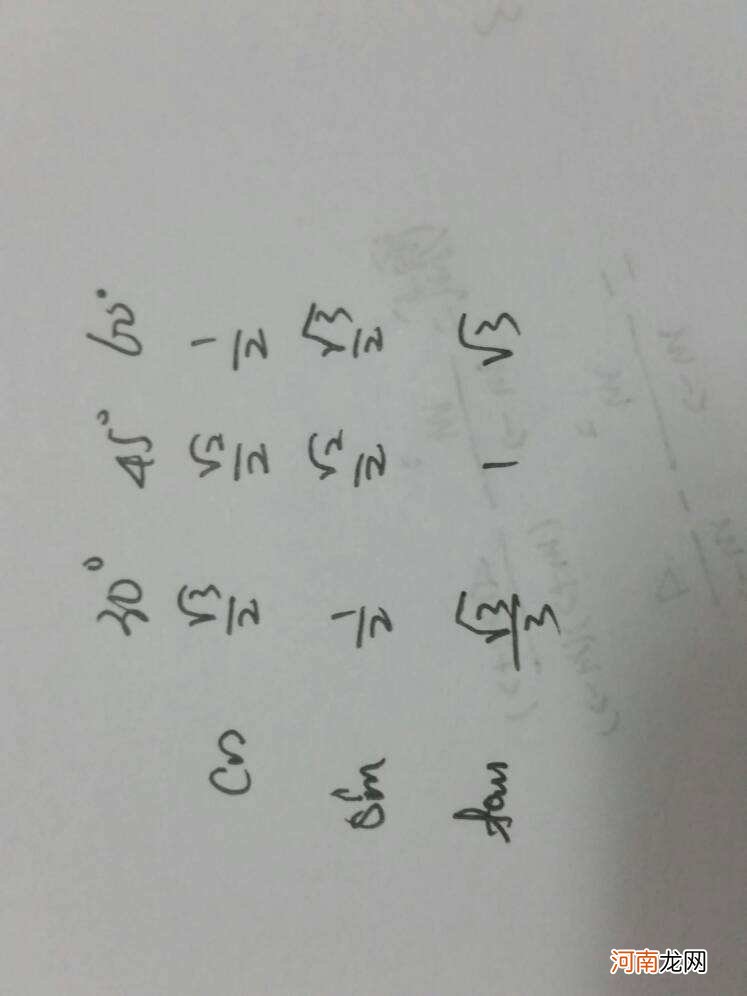 30° 45° 60°
cos √3/2 √2/2 1/2
sin 1/2 √2/2 √3/2
tan √3/3 1 √3
河南龙网